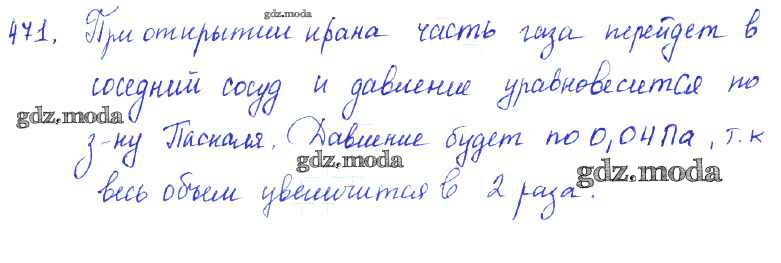 gdz.moda
471. При открытии крана часть газа перейдет в
соседний сосуд и давление уравновесится по
gdz.moda
з-ну Паскаля. Давление будет по 0,04 Па, т.к
gdz.moda
gdz.moda
весь объем увеличится в 2 раза.